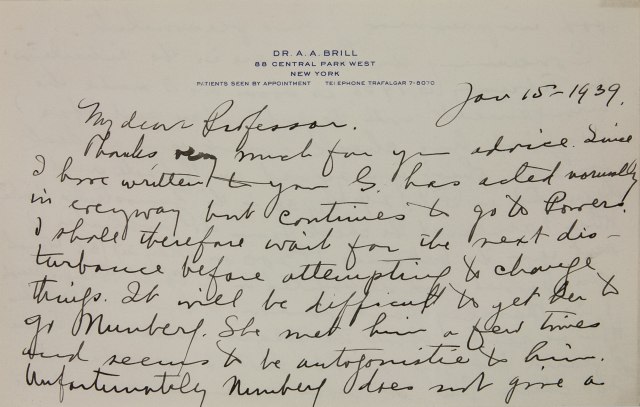 DR. A. A. BRILL
88 CENTRAL PARK WEST
NEW YORK
PATIENTS SEEN BY APPOINTMENT TELEPHONE TRAFALGAR 7-8070
Jan 15 - 1939.
My dear Professor.
Thanks very much for your advice. Since
I have written to you G. has acted normally
in everyway but continues to go to Powers.
I shall therefore wait for the next dis-
turbance before attempting to change
things. It will be difficult to get her to
go Nunberg. She met him a few times
and seems to be antogonistic to him.
Unfortunately Nunberg does not give a